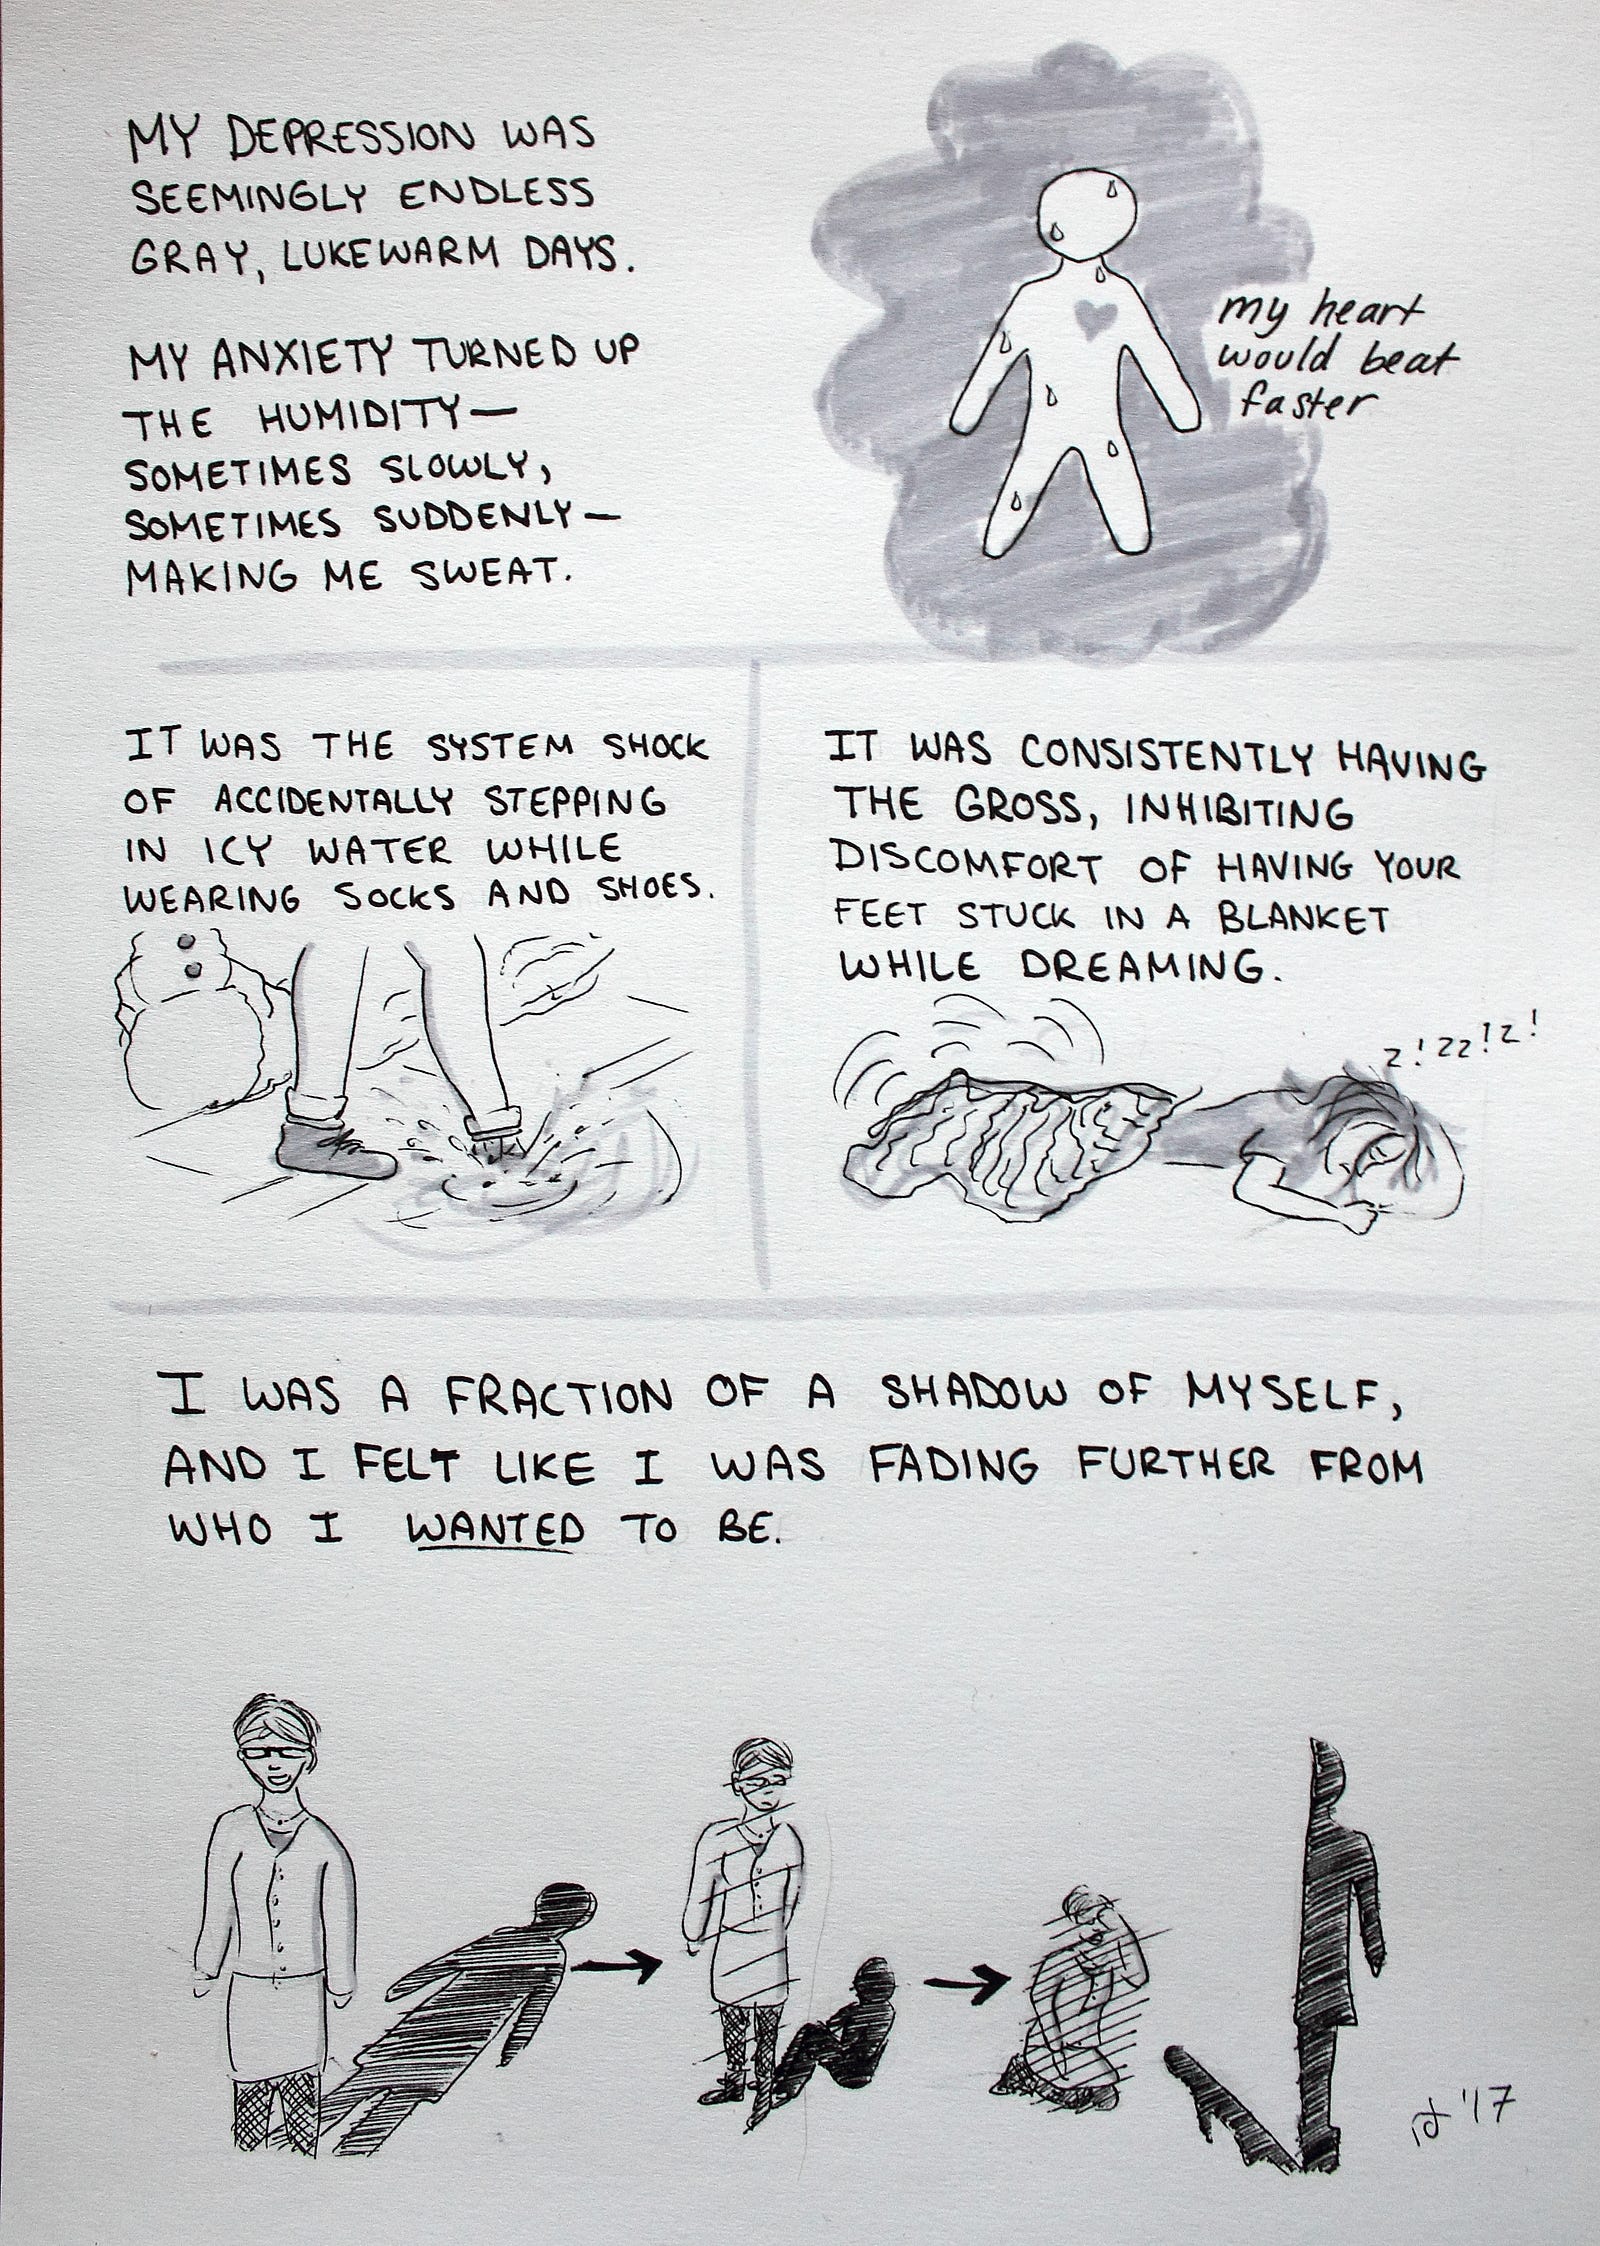 MY DEPRESSION WAS
SEEMINGLY ENDLESS
GRAY, LUKEWARM DAYS.
MY ANXIETY TURNED UP
THE HUMIDITY—
SOMETIMES SLOWLY,
SOMETIMES SUDDENLY—
MAKING ME SWEAT.
my heart
would beat
faster
IT WAS THE SYSTEM SHOCK
OF ACCIDENTALLY STEPPING
IN ICY WATER WHILE
WEARING SOCKS AND SHOES.
IT WAS CONSISTENTLY HAVING
THE GROSS, INHIBITING
DISCOMFORT OF HAVING YOUR
FEET STUCK IN A BLANKET
WHILE DREAMING.
z!zz!z!
I WAS A FRACTION OF A SHADOW OF MYSELF,
AND I FELT LIKE I WAS FADING FURTHER FROM
WHO I WANTED TO BE.
'17